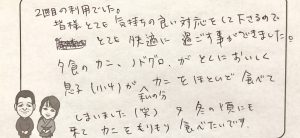 2回目の利用でした。
皆様とても気持ちの良い対応をして下さるので
とても快適に過ごす事ができました。
夕食のカニ、ノドグロ、がとくにおいしく
息子(小4)が私の分カニをほとんど食べて
しまいました(笑) 又冬の頃にも
来てカニをもりもり食べたいです。